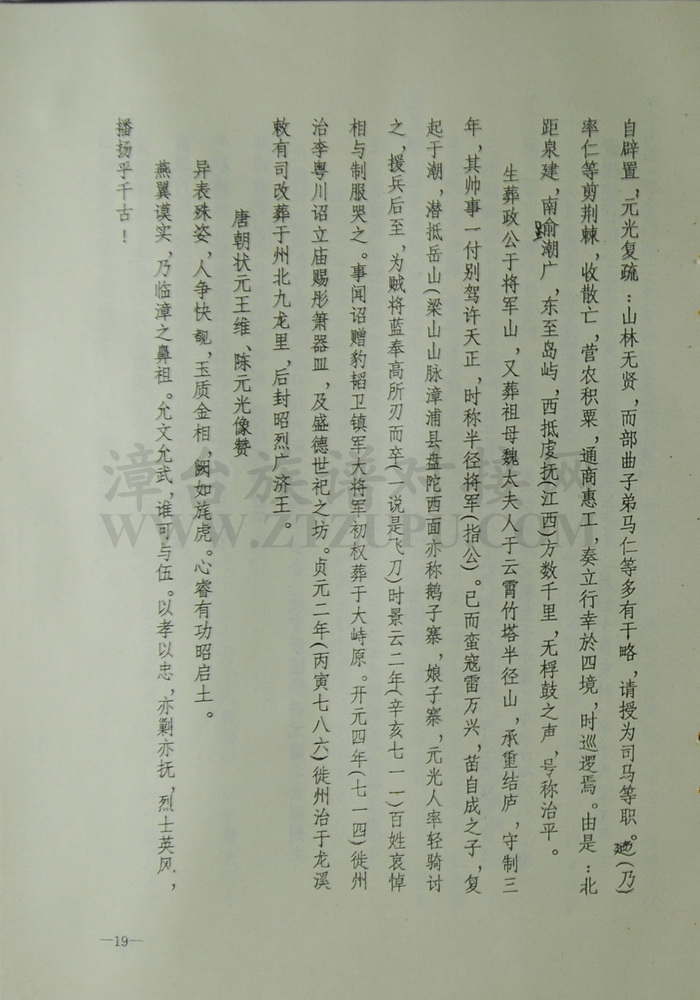 自辟置，元光复疏：山林无贤，而部曲子弟马仁等多有干略，请授为司马等职。廼(乃)
率仁等剪荆棘，收散亡，营农积粟，通商惠工，奏立行幸於四境，时巡逻焉。由是：北
距泉建，南踰潮广，东至岛屿，西抵虔抚(江西)方数千里，无桴鼓之声，号称治平。
生葬政公于将军山，又葬祖母魏太夫人于云霄竹塔半径山，承重结庐，守制三
年，其帅事一付别驾许天正，时称半径将军(指公)。已而蛮寇雷万兴，苗自成之子，复
起于潮，潜抵岳山(梁山山脉漳浦县盘陀西面亦称鹅子寨，娘子寨，元光人率轻骑讨
之，援兵后至，为贼将蓝奉高所刃而卒(一说是飞刀)时景云二年(辛亥七一一)百姓哀悼
相与制服哭之。事闻诏赠豹韬卫镇军大将军初权葬于大峙原。开元四年(七一四)徙州
治李粤川诏立庙赐彤箫器皿，及盛德世祀之坊。贞元二年(丙寅七八六)徙州治于龙溪
敕有司改葬于州北九龙里，后封昭烈广济王。
唐朝状元王维、陈元光像赞
异表殊姿，人争快觌，玉质金相，阚如旄虎。心睿有功昭启土。
燕翼谟实，乃临漳之鼻祖。允文允武，谁可与伍。以孝以忠，亦剿亦抚，烈士英风，
播扬乎千古！
—19—
漳台族谱对接网
WWW.ZTZUPU.COM